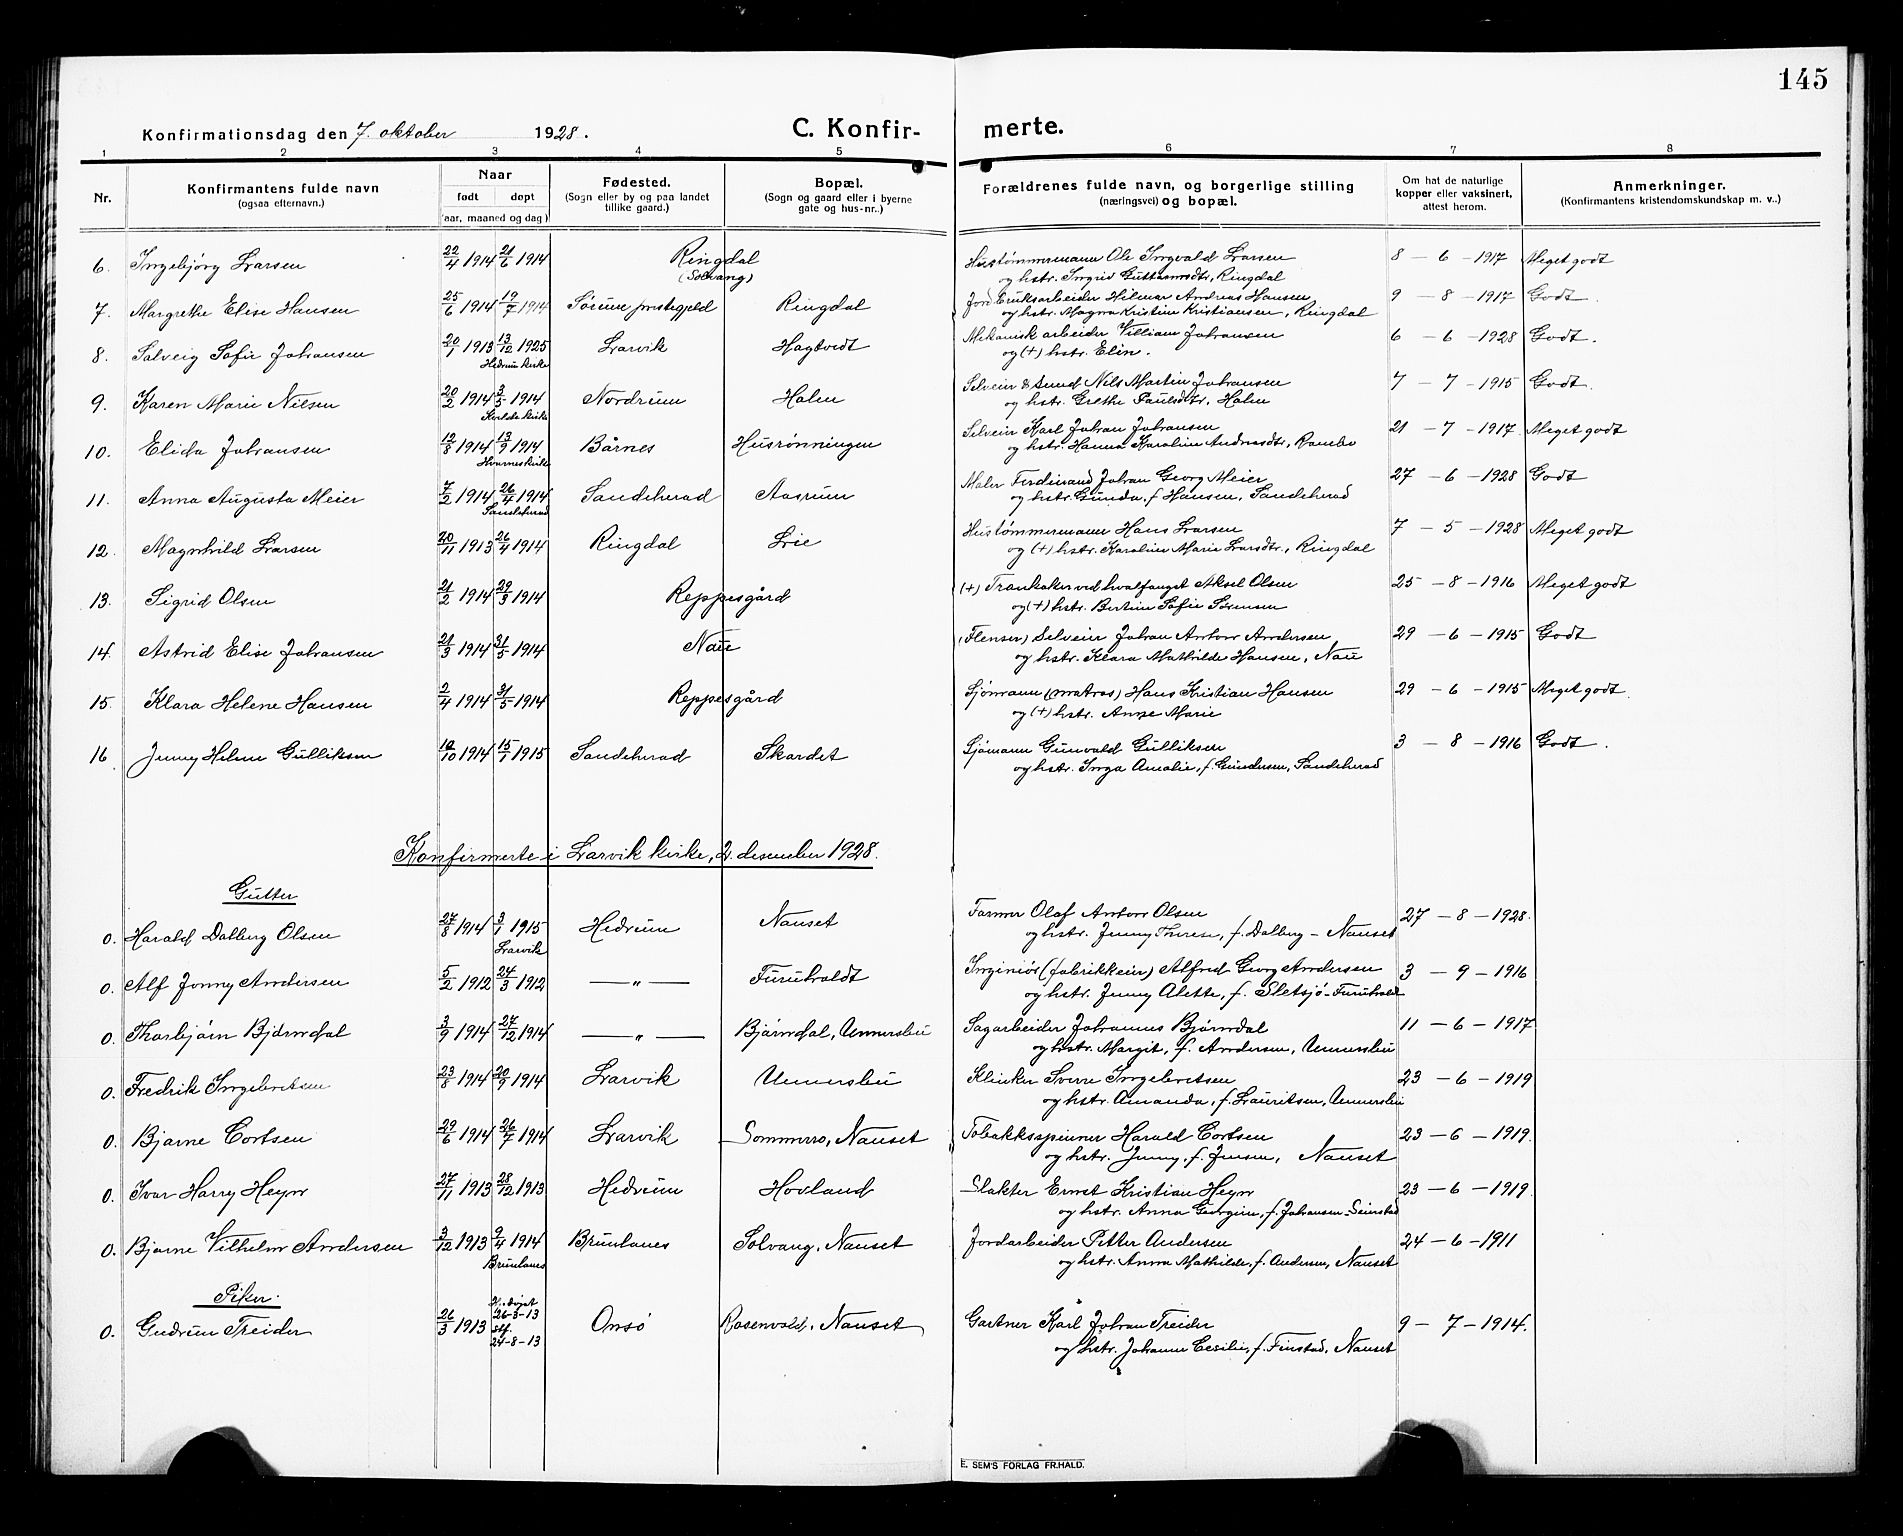 145
Konfirmationsdag den 7. oktober 1928. C. Konfir- merte.
1 2 3 4 5 6 7 8
Nr. Konfirmantens fulde navn (ogsaa efternavn.) Naar født døpt (aar, maaned og dag) Fødested. (Sogn eller by og paa landet tillike gaard.) Bopæl. (Sogn og gaard eller i byerne gate og hus-nr..) Forældrenes fulde navn, og borgerlige stilling (næringsvei) og bopæl. Om hat de naturlige kopper eller vaksinert, attest herom. Anmerkninger. (Konfirmantens kristendomskundskap m. v..)
6. Ingebjørg Larsen 22/4 1914 21/6 1914 Ringdal (Solvang) Hustømmermann Ole Ingvald Larsen 8 - 6 - 1917 Meget godt
og hstr. Ingrid Guttormsdtr, Ringdal
7. Margrethe Elise Hansen 25/6 1914 19/7 1914 Sørum prestegjeld Ringdal Jordbruksarbeider Hilmar Andreas Hansen 9 - 8 - 1917 Godt.
og hstr. Magna Kristine Kristiansen, Ringdal
8. Solveig Sofie Johansen 20/1 1913 13/12 1925 Larvik Hagtvedt Mekanisk arbeider William Johansen 6 - 6 - 1928 Godt.
Hedrum kirke og (+) hstr. Elin.
9. Karen Marie Nilsen 20/2 1914 3/5 1914 Nordrum Holm Selveier Nils Martin Johansen 7 - 7 - 1915 Godt.
Kvelde kirke og hstr. Grethe Paulsdtr, Holm
10. Elida Johansen 12/8 1914 13/9 1914 Bårnes Husrønningen Selveier Karl Johan Johansen 21 - 7 - 1917 Meget godt
Hvarneskirke og hstr. Hanna Karoline Andreasdtr,
11. Anna Augusta Meier 7/2 1914 26/4 1914 Sandeherad Aasrum Maler Ferdinand Johan Georg Meier 27 - 6 - 1928 Godt
Sandeherad og hstr. Gunda, f. Hansen, Sandeherad
12. Magnhild Larsen 20/11 1913 26/4 1914 Ringdal Lie Hustømmermann Hans Larsen 7 - 5 - 1928 Meget godt
og (+) hstr. Karoline Marie Larsdtr, Ringdal
13. Sigrid Olsen 21/2 1914 29/3 1914 Reppesgård (+) Trankoker ved hvalfanget Aksel Olsen 25 - 8 - 1916 Meget godt
og (+) hstr. Bertine Sofie Sørensen
14. Astrid Elise Johansen 21/3 1914 31/5 1914 Nau (Flenser) Selveier Johan Anton Andersen 29 - 6 - 1915 Godt
og hstr. Klara Mathilde Hansen, Nau
15. Klara Helene Hansen 2/4 1914 31/5 1914 Reppesgård Sjømann (matros) Hans Kristian Hansen 29 - 6 - 1915 Meget godt.
og (+) hstr. Anne Marie
16 Jenny Helene Gulliksen 10/10 1914 15/1 1915 Sandeherad Skardet Sjømann Gunvald Gulliksen 3 - 8 - 1916 Godt.
og hstr. Inga Amalie, f. Gundersen, Sandeherad
Konfirmerte i Larvik kirke, 2. desember 1928.
Gutter
0. Harald Dalberg Olsen 27/8 1914 3/1 1915 Hedrum Nanset Farmer Olaf Anton Olsen 27 - 8 - 1928.
Larvik og hstr. Jenny Therese, f. Dalberg - Nanset
0. Alf Jonny Andersen 5/2 1912 24/3 1912 — " — Furuholdt Ingeniør (fabrikkeier) Alfred Georg Andersen 3 - 9 - 1916
og hstr. Jenny Alette, f. Sletsjø - Furuholdt
0. Thorbjørn Bjørndal 3/9 1914 27/12 1914 — " — Bjørndal, Unnersbu Sagarbeider Johannes Bjørndal 11 - 6 - 1917
og hstr. Margit, f. Andersen, Unnersbu
0. Fredrik Ingebretsen 23/8 1914 20/9 1914 Larvik Unnersbu Klinker Sverre Ingebretsen 23 - 6 - 1919
og hstr. Amanda, f. Lauritsen, Unnersbu
0. Bjarne Cortsen 29/6 1914 26/7 1914 Larvik Sommerro, Nanset Tobakksspinner Harald Cortsen 23 - 6 - 1919.
og hstr. Jenny, f. Jensen, Nanset
0. Ivar Harry Heyn 27/11 1913 28/12 1913 Hedrum Hovland Slakter Ernst Kristian Heyn 23 - 6 - 1919.
og hstr. Anna Georgine, f. Johansen -
0. Bjarne Vilhelm Andersen 3/12 1913 9/4 1914 Brunlanes Solvang, Nanset Jordarbeider Petter Andersen 24 - 6 - 1911
Brunlanes og hstr. Anna Mathilde, f. Andersen, Nanset
Piker.
0. Gudrun Treider 26/3 1913 H.døpt 26-3-13 stf. 24-8-13 Onsø Rosenvold, Nanset Gartner Karl Johan Treider 9 - 7 - 1914.
og hstr. Johanne Cecilie, f. Finstad, Nanset
E. SEM'S FORLAG FR.HALD.